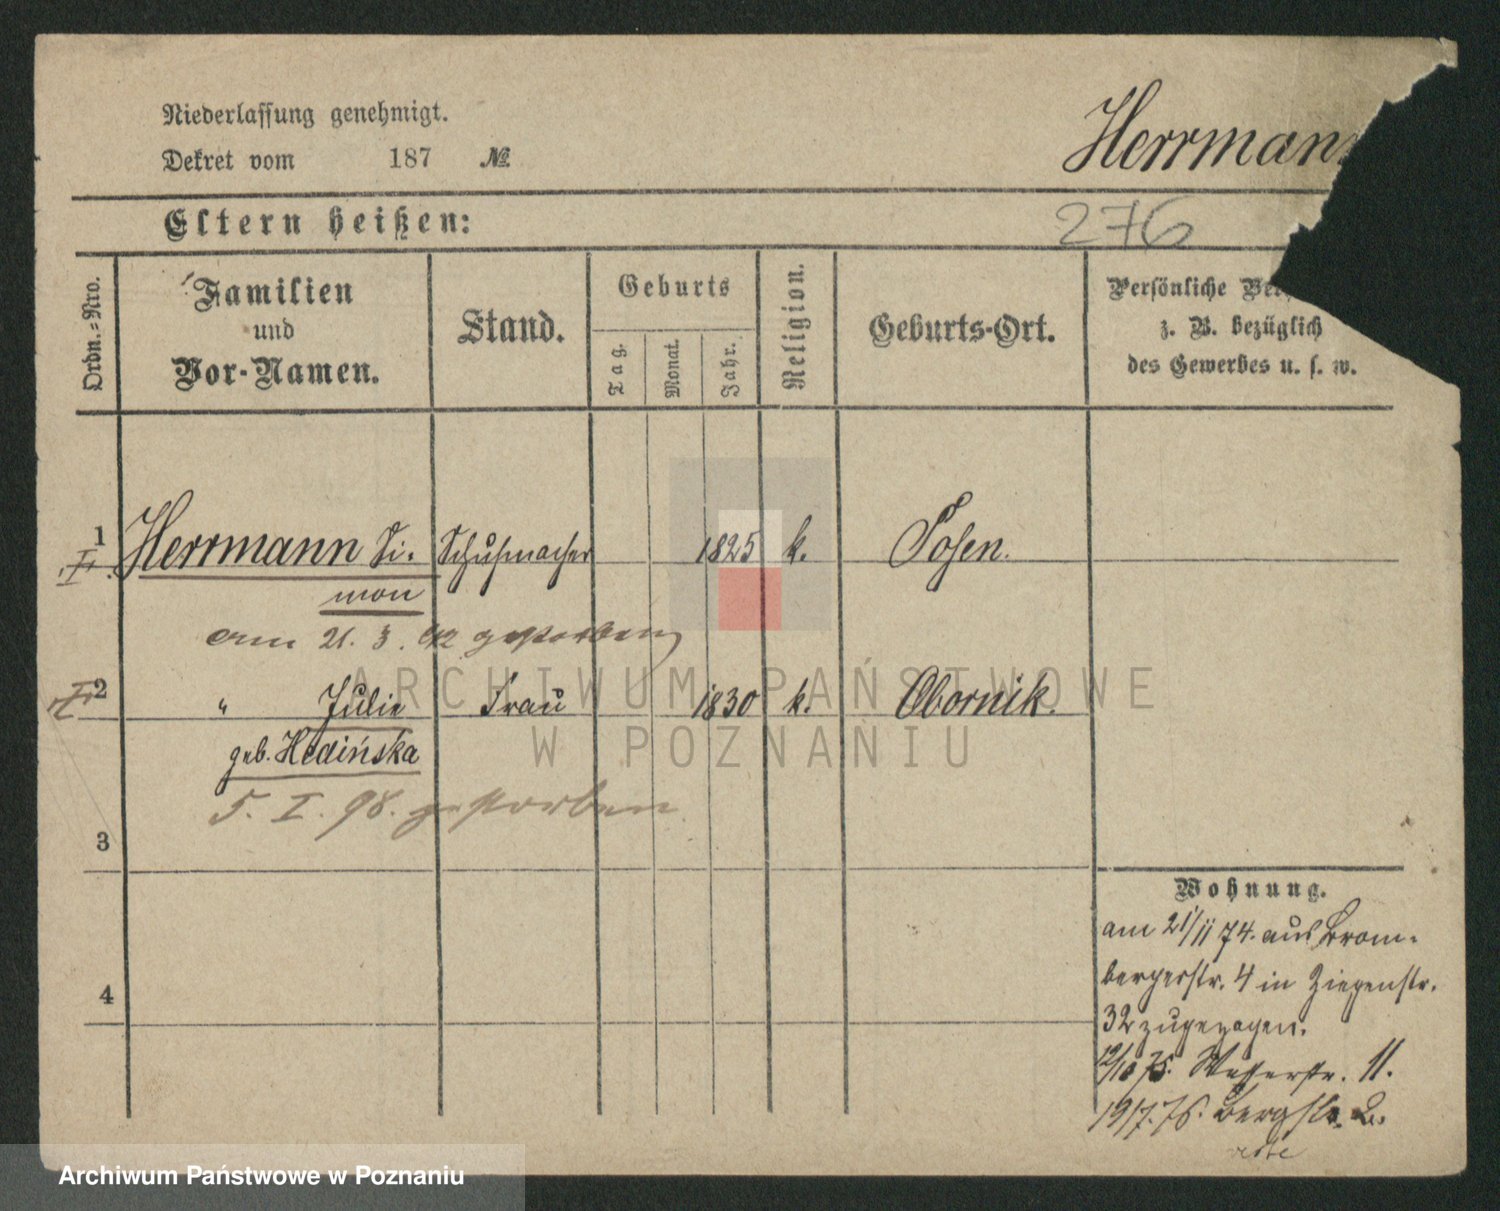 Niederlassung genehmigt.
Dekret vom 187 №
Herrmann
Eltern heißen:
276
Ordn.-Nro.
Familien
und
Vor-Namen.
Stand.
Geburts
Tag.
Monat.
Jahr.
Religion.
Geburts-Ort.
Persönliche
z. B. bezüglich
des Gewerbes u. s. w.
1 Herrmann Si- Schuhmacher 1825 k. Posen.
I.
mon
am 21. 3. 92 gestorben
2 " Julie Frau 1830 k. Obornik.
geb. Hedińska
5. I. 98. gestorben
3
4
Wohnung.
am 21/11 74. aus Brom-
bergerstr. 4 in Ziegenstr.
32 zugezogen.
12/10 75. 11.
19/7. 76. Bergstr. 2.
ARCHIWUM PAŃSTWOWE
W POZNANIU
Archiwum Państwowe w Poznaniu